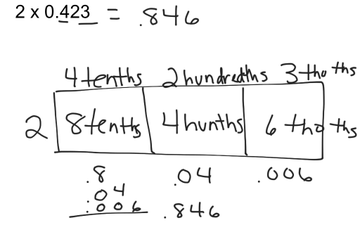 2 x 0.423 = .846
4 tenths 2 hundredths 3 tho ths
2 8 tenths 4 hunths 6 tho ths
.8 .04 .006
.04
.006
.846